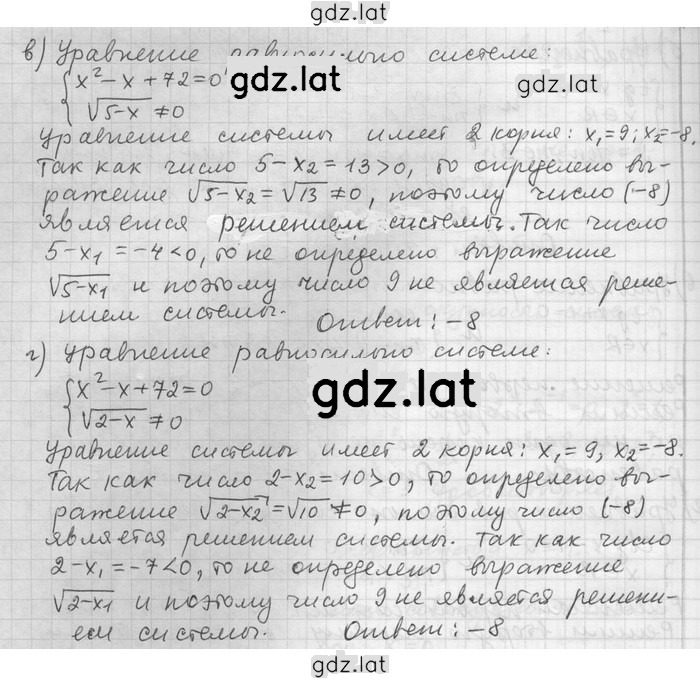 gdz.lat
в) Уравнение равносильно системе:
{x² - x + 72 = 0
gdz.lat
gdz.lat
√5-x ≠ 0
Уравнение системы имеет 2 корня: x₁ = 9; x₂ = -8.
Так как число 5 - x₂ = 13 > 0, то определено вы-
ражение √5-x₂ = √13 ≠ 0, поэтому число (-8)
является решением системы. Так число
5 - x₁ = -4 < 0, то не определено выражение
√5-x₁ и поэтому число 9 не является реше-
нием системы. Ответ: -8
г) Уравнение равносильно системе:
{x² - x + 72 = 0
√2-x ≠ 0
gdz.lat
Уравнение системы имеет 2 корня: x₁ = 9, x₂ = -8.
Так как число 2 - x₂ = 10 > 0, то определено вы-
ражение √2-x₂ = √10 ≠ 0, поэтому число (-8)
является решением системы. Так как число
2 - x₁ = -7 < 0, то не определено выражение
√2-x₁ и поэтому число 9 не является решени-
ем системы. Ответ: -8
gdz.lat